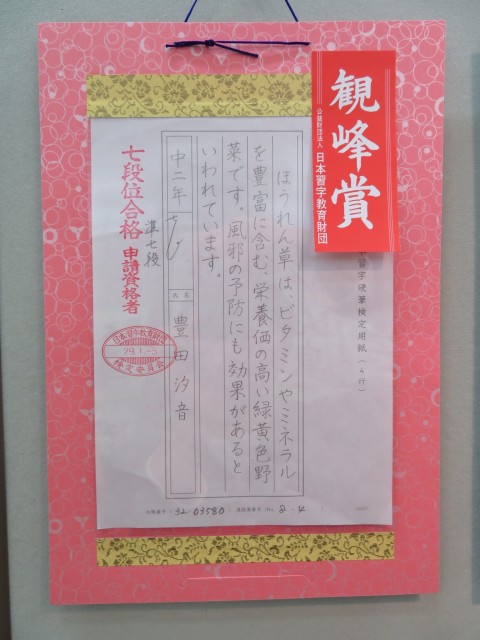 観峰賞
公益財団法人 日本習字教育財団
習字硬筆検定用紙(4行)
ほうれん草は、ビタミンやミネラル
を豊富に含む、栄養価の高い緑黄色野
菜です。風邪の予防にも効果があると
いわれています。
中二年
氏名
豊田汐音
準七後
七段位合格 申請資格者
日本習字教育財団
検定委員会
03580
8-4